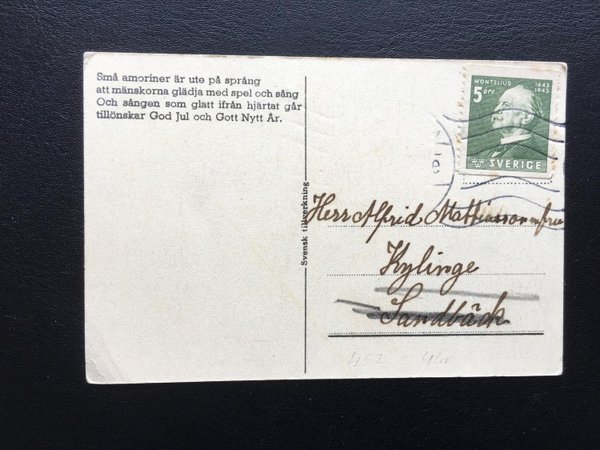 Små amoriner är ute på språng
att mänskorna glädja med spel och sång
Och sången som glatt ifrån hjärtat går
tillönskar God Jul och Gott Nytt År.
MONTELIUS 1843 1943
5 öre
SVERIGE
Svensk tillverkning
Herr Alfrid Mattiasson m fru
Kylinge
Sandbäck
452